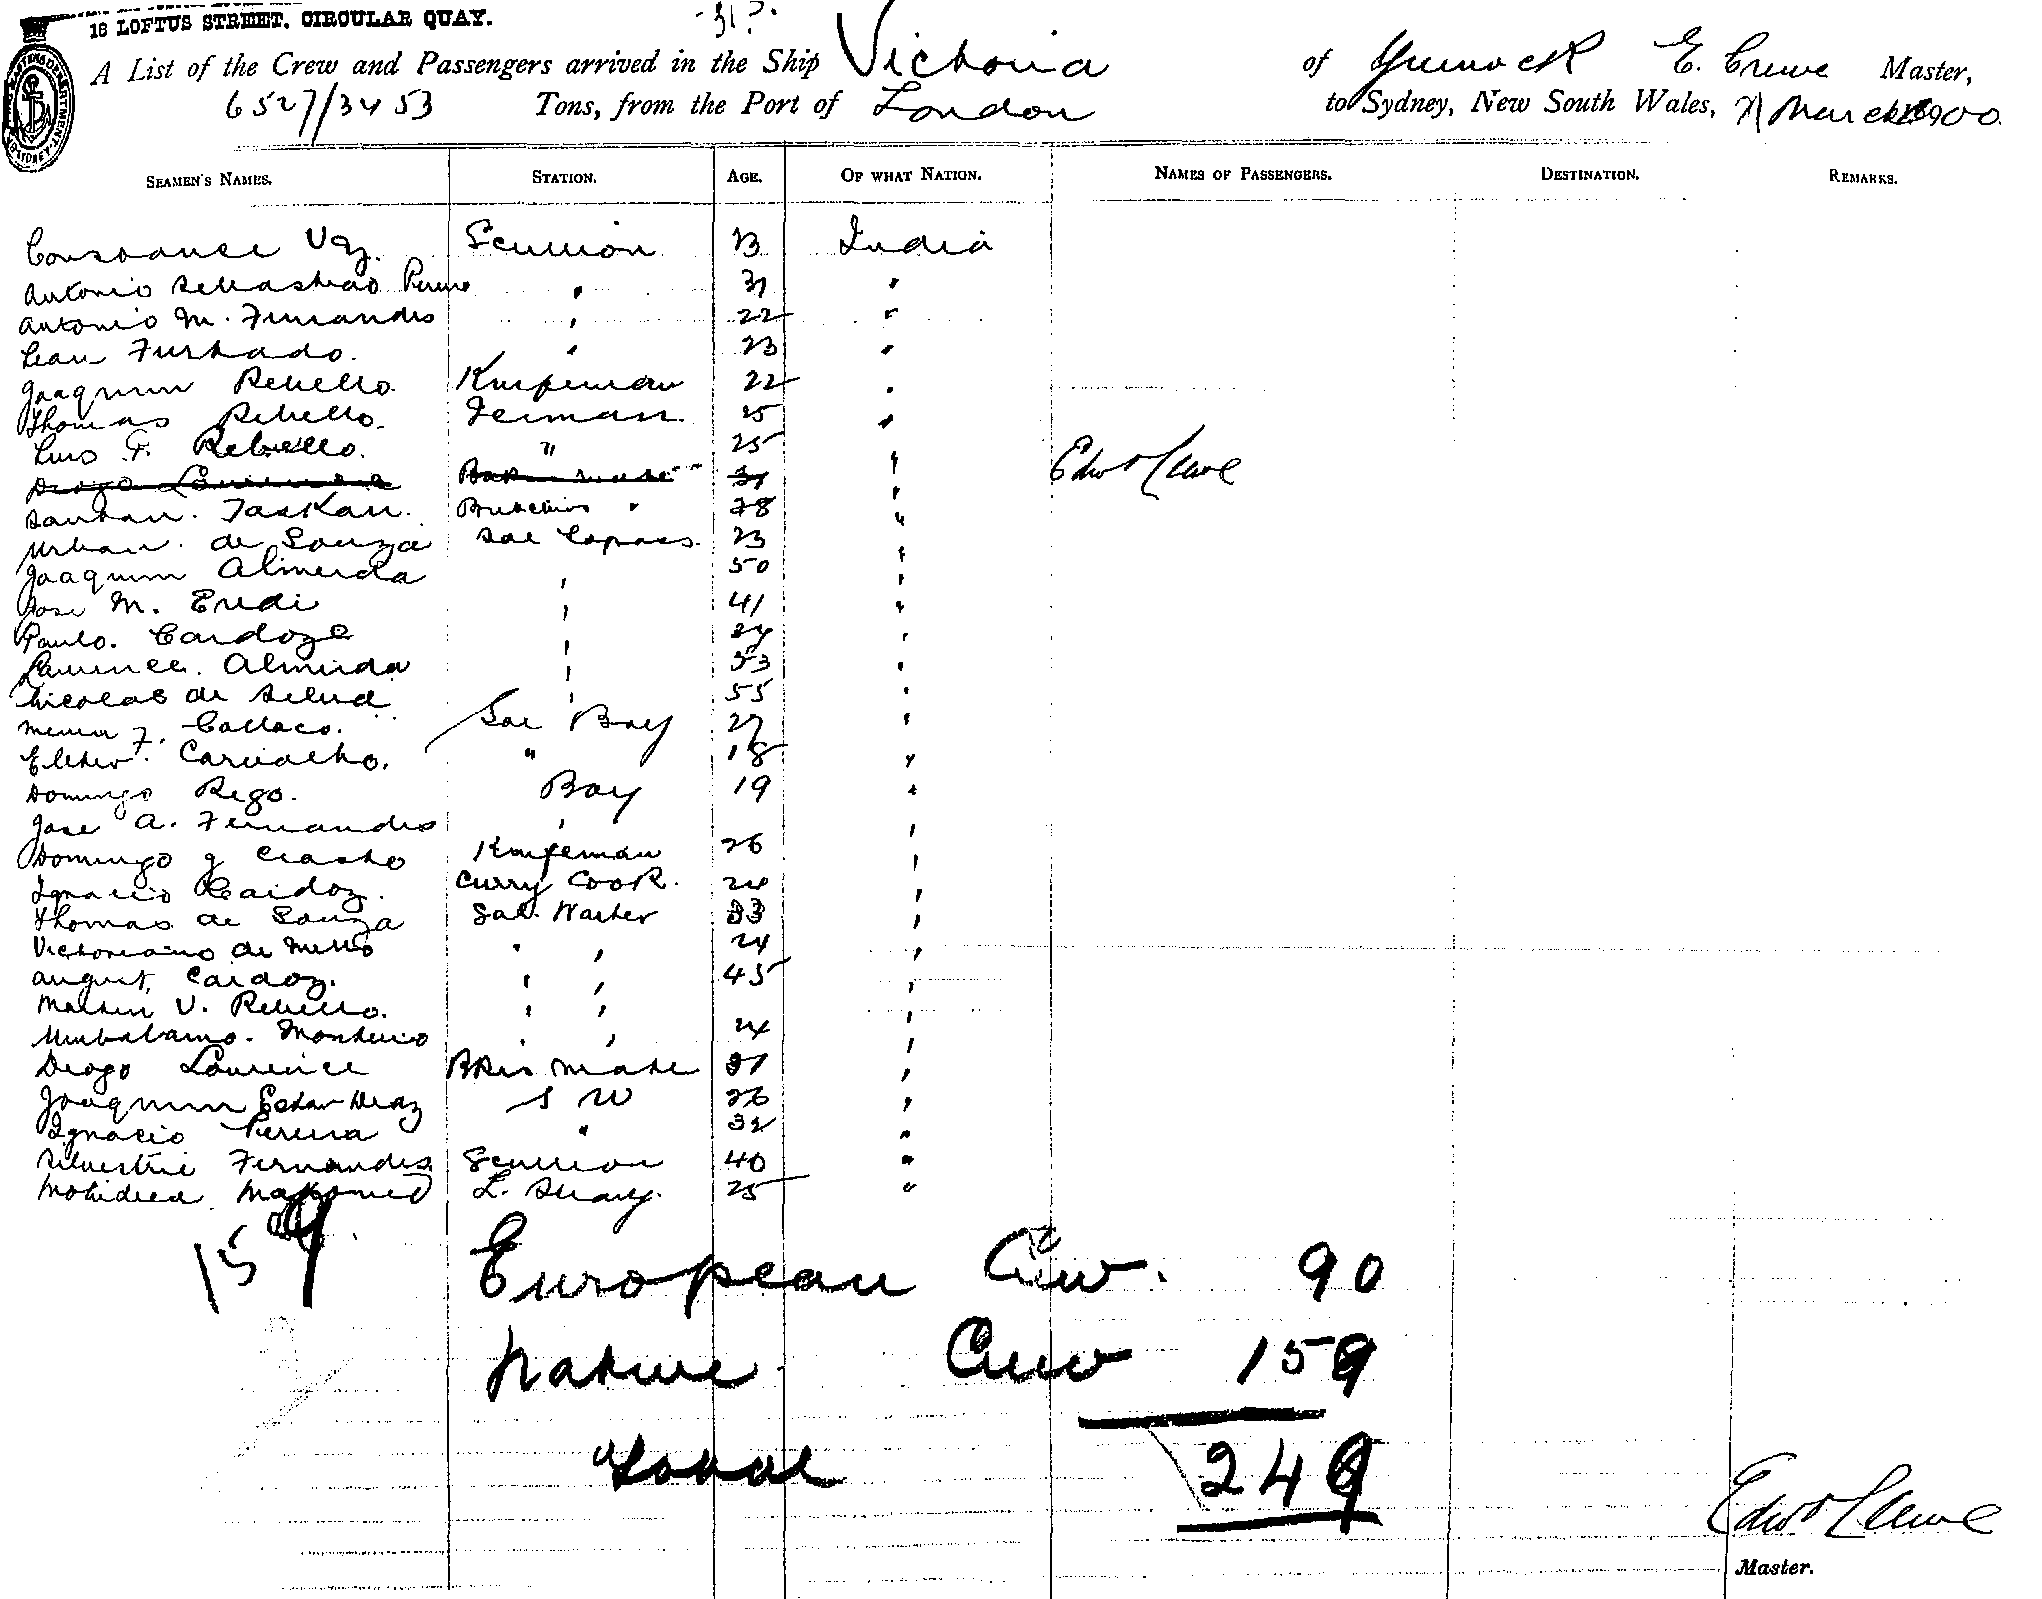 18 LOFTUS STREET, CIRCULAR QUAY.
A List of the Crew and Passengers arrived in the Ship Victoria of Greenock E. Crewe Master,
6527/3453 Tons, from the Port of London to Sydney, New South Wales, March 1900.
SEAMEN'S NAMES. STATION. AGE. OF WHAT NATION. NAMES OF PASSENGERS. DESTINATION. REMARKS.
Vaz. Scullion 23 India
Antonio Sebastiao 31 "
Antonio M. Fernandes " 22 "
Furtado. " 23 "
Joaquim Rebello. Knifeman 22 "
Thomas Rebello. 25 "
Luis F. Rebello. " 25 "
Edwd Crewe
Diogo Laurence Bakers mate 31 "
Butchers " 28 "
Urban. de Souza 23 "
Joaquim Almeida " 50 "
Jose M. " 41 "
Paulo. Cardoza " "
Laurence. Almeida " 53 "
Nicolas de " 55 "
F. Collaco. Bay 27 "
Carvalho. " 18 "
Domingo Rego. Bay 19 "
Jose A. Fernandes " "
Domingo Knifeman 26 "
Ignacio Cardoz. Curry Cook. 24 "
Thomas de Souza 33 "
Victoriano de Mello " " 24 "
August, Cardoz. " " 45 "
V. Rebello. " " "
Monteiro " " 24 "
Diogo Laurence Bkrs Mate 31 "
Joaquim Diaz S W 26 "
Ignacio Pereira " 32 "
Silvestrie Fernandes Scullion 40 "
Mahomed 25 "
159
European Crew. 90
Native Crew 159
Total 249
Edwd Crewe
Master.